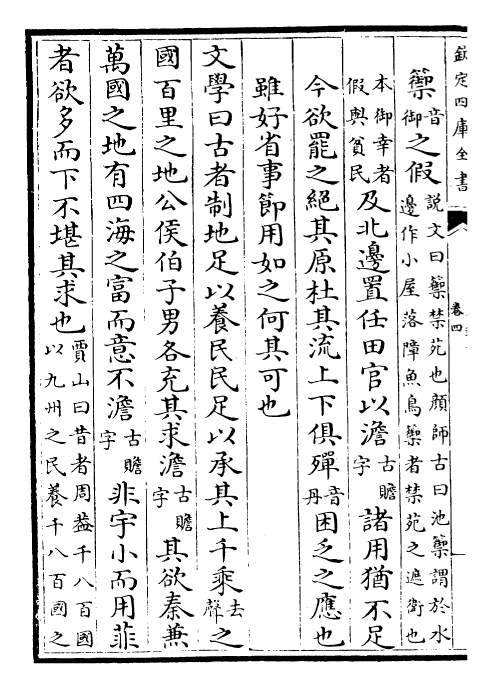 欽定四庫全書
卷四
籞音御之假說文曰籞禁苑也顔師古曰池籞謂於水邊作小屋落障魚鳥籞者禁苑之遮衛也
本御幸者假與貧民及北邊置任田官以澹古贍字諸用猶不足
今欲罷之絕其原杜其流上下俱殫音丹困乏之應也
雖好省事節用如之何其可也
文學曰古者制地足以養民民足以承其上千乘去聲之
國百里之地公侯伯子男各充其求澹古贍字其欲秦兼
萬國之地有四海之富而意不澹古贍字非宇小而用菲
者欲多而下不堪其求也賈山曰昔者周葢千八百國以九州之民養千八百國之